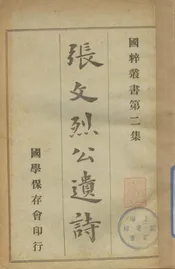 國粹叢書第二集
張文烈公遺詩
國學保存會印行